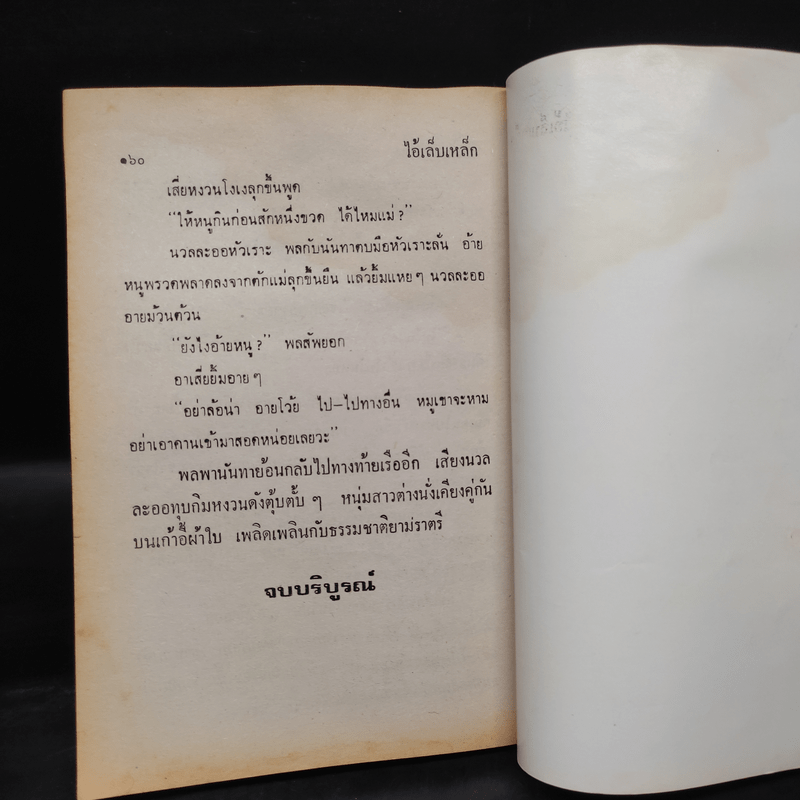 ๑๖๐ ไอ้เล็บเหล็ก
เสี่ยหงวนโงเงลุกขึ้นพูด
“ให้หนูกินก่อนสักหนึ่งขวด ได้ไหมแม่?”
นวลละออหัวเราะ พลกับนันทาตบมือหัวเราะลั่น อ้าย
หนูพรวดพลาดลงจากตักแม่ลุกขึ้นยืน แล้วยิ้มแหยๆ นวลละออ
อายม้วนต้วน
“ยังไงอ้ายหนู?” พลสัพยอก
อาเสี่ยยิ้มอายๆ
“อย่าล้อน่า อายโว้ย ไป–ไปทางอื่น หมูเขาจะหาม
อย่าเอาคานเข้ามาสอดหน่อยเลยวะ”
พลพานันทาย้อนกลับไปทางท้ายเรืออีก เสียงนวล
ละออทุบกิมหงวนดังตุ้บตั้บ ๆ หนุ่มสาวต่างนั่งเคียงคู่กัน
บนเก้าอี้ผ้าใบ เพลิดเพลินกับธรรมชาติยามราตรี
จบบริบูรณ์